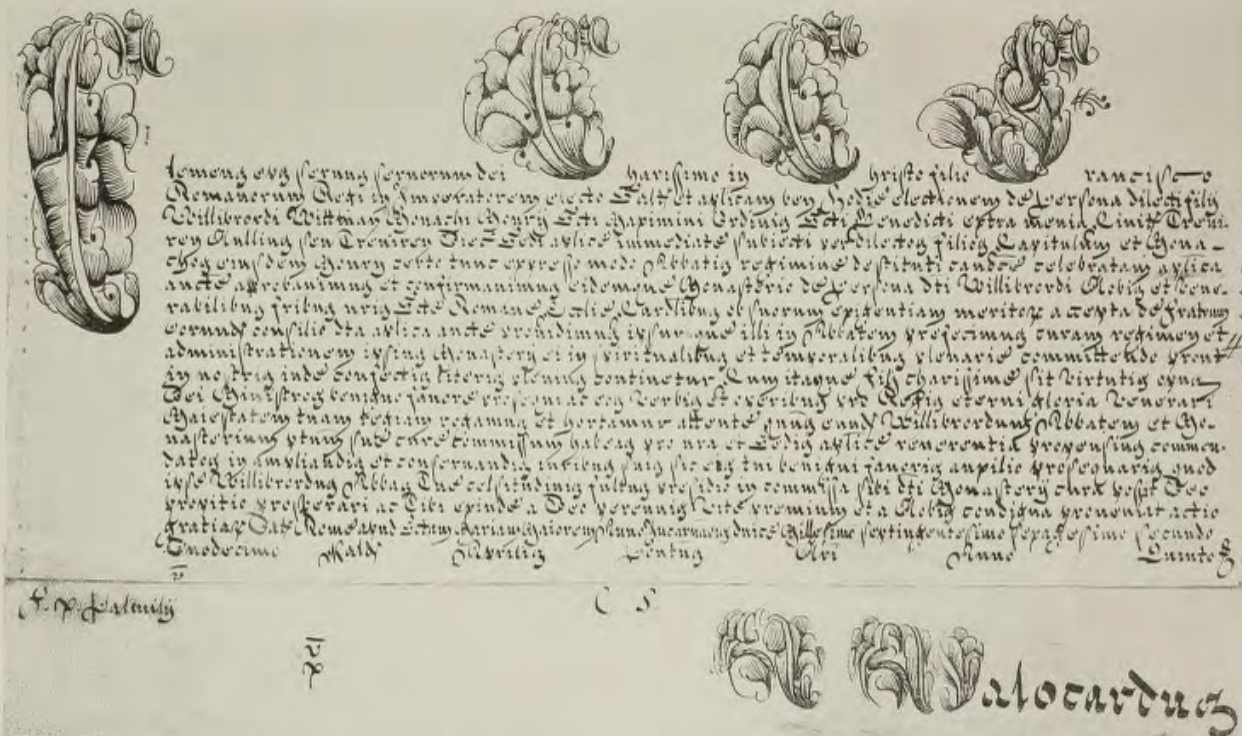 Clemens epus servus servorum dei Charissimo in Christo filio Francisco
Romanorum Regi in Imperatorem electo Salt et aplicam ben Hodie electionem de persona dilecti filij
Willibrordi Wittman Monachi Monrij Scti Maximini Ordinis Scti Benedicti extra menia Civitt Trevi-
ren Nullius seu Treviren Dioec Sedi aplice immediate subiecti per dilectos filios Capitulum et Mona-
chos eiusdem Monrij certo tunc expresso modo Abbatis regimine destituti celebratam aplica
aucte approbavimus et confirmavimus eidemque Monasterio de persona dti Willibrordi Nobis et Vene-
rabilibus fribus nris Scte Romane Ecclie Cardlibus ob suorum exigentiam meritor accepta de fratrum
eorund consilio dta aplica aucte providimus ipsumque illi in Abbatem prefecimus curam regimen et
administrationem ipsius Monasterij ei in spiritualibus et temporalibus plenarie committendo prout
in nostris inde confectis literis plenius continetur Cum itaque fili charissime sit virtutis opus
Dei Ministros benigno favore prosequi ac eos verbis et operibus pro Regis eterni gloria venerari
Maiestatem tuam regiam rogamus et hortamur attente qnus eund Willibrordum Abbatem et Mo-
nasterium ptum sue cure commissum habeas pro nra et Sedis aplice reverentia propensius commen-
datos in ampliandis et conservandis iuribus suis sic eos tui benigni favoris auxilio prosequaris quod
ipse Willibrordus Abbas Tue celsitudinis fultus presidio in commissa sibi dti Monasterij cura possit Deo
propitio prosperari ac Tibi exinde a Deo perennis vite premium et a Nobis condigna proveniat actio
gratiar Dat Rome apud Sctam Mariam Maiorem Anno Incarnacnis dnice Millesimo septingentesimo sexagesimo secundo
Duodecimo Kald Aprilis Pontus Nri Anno Quinto